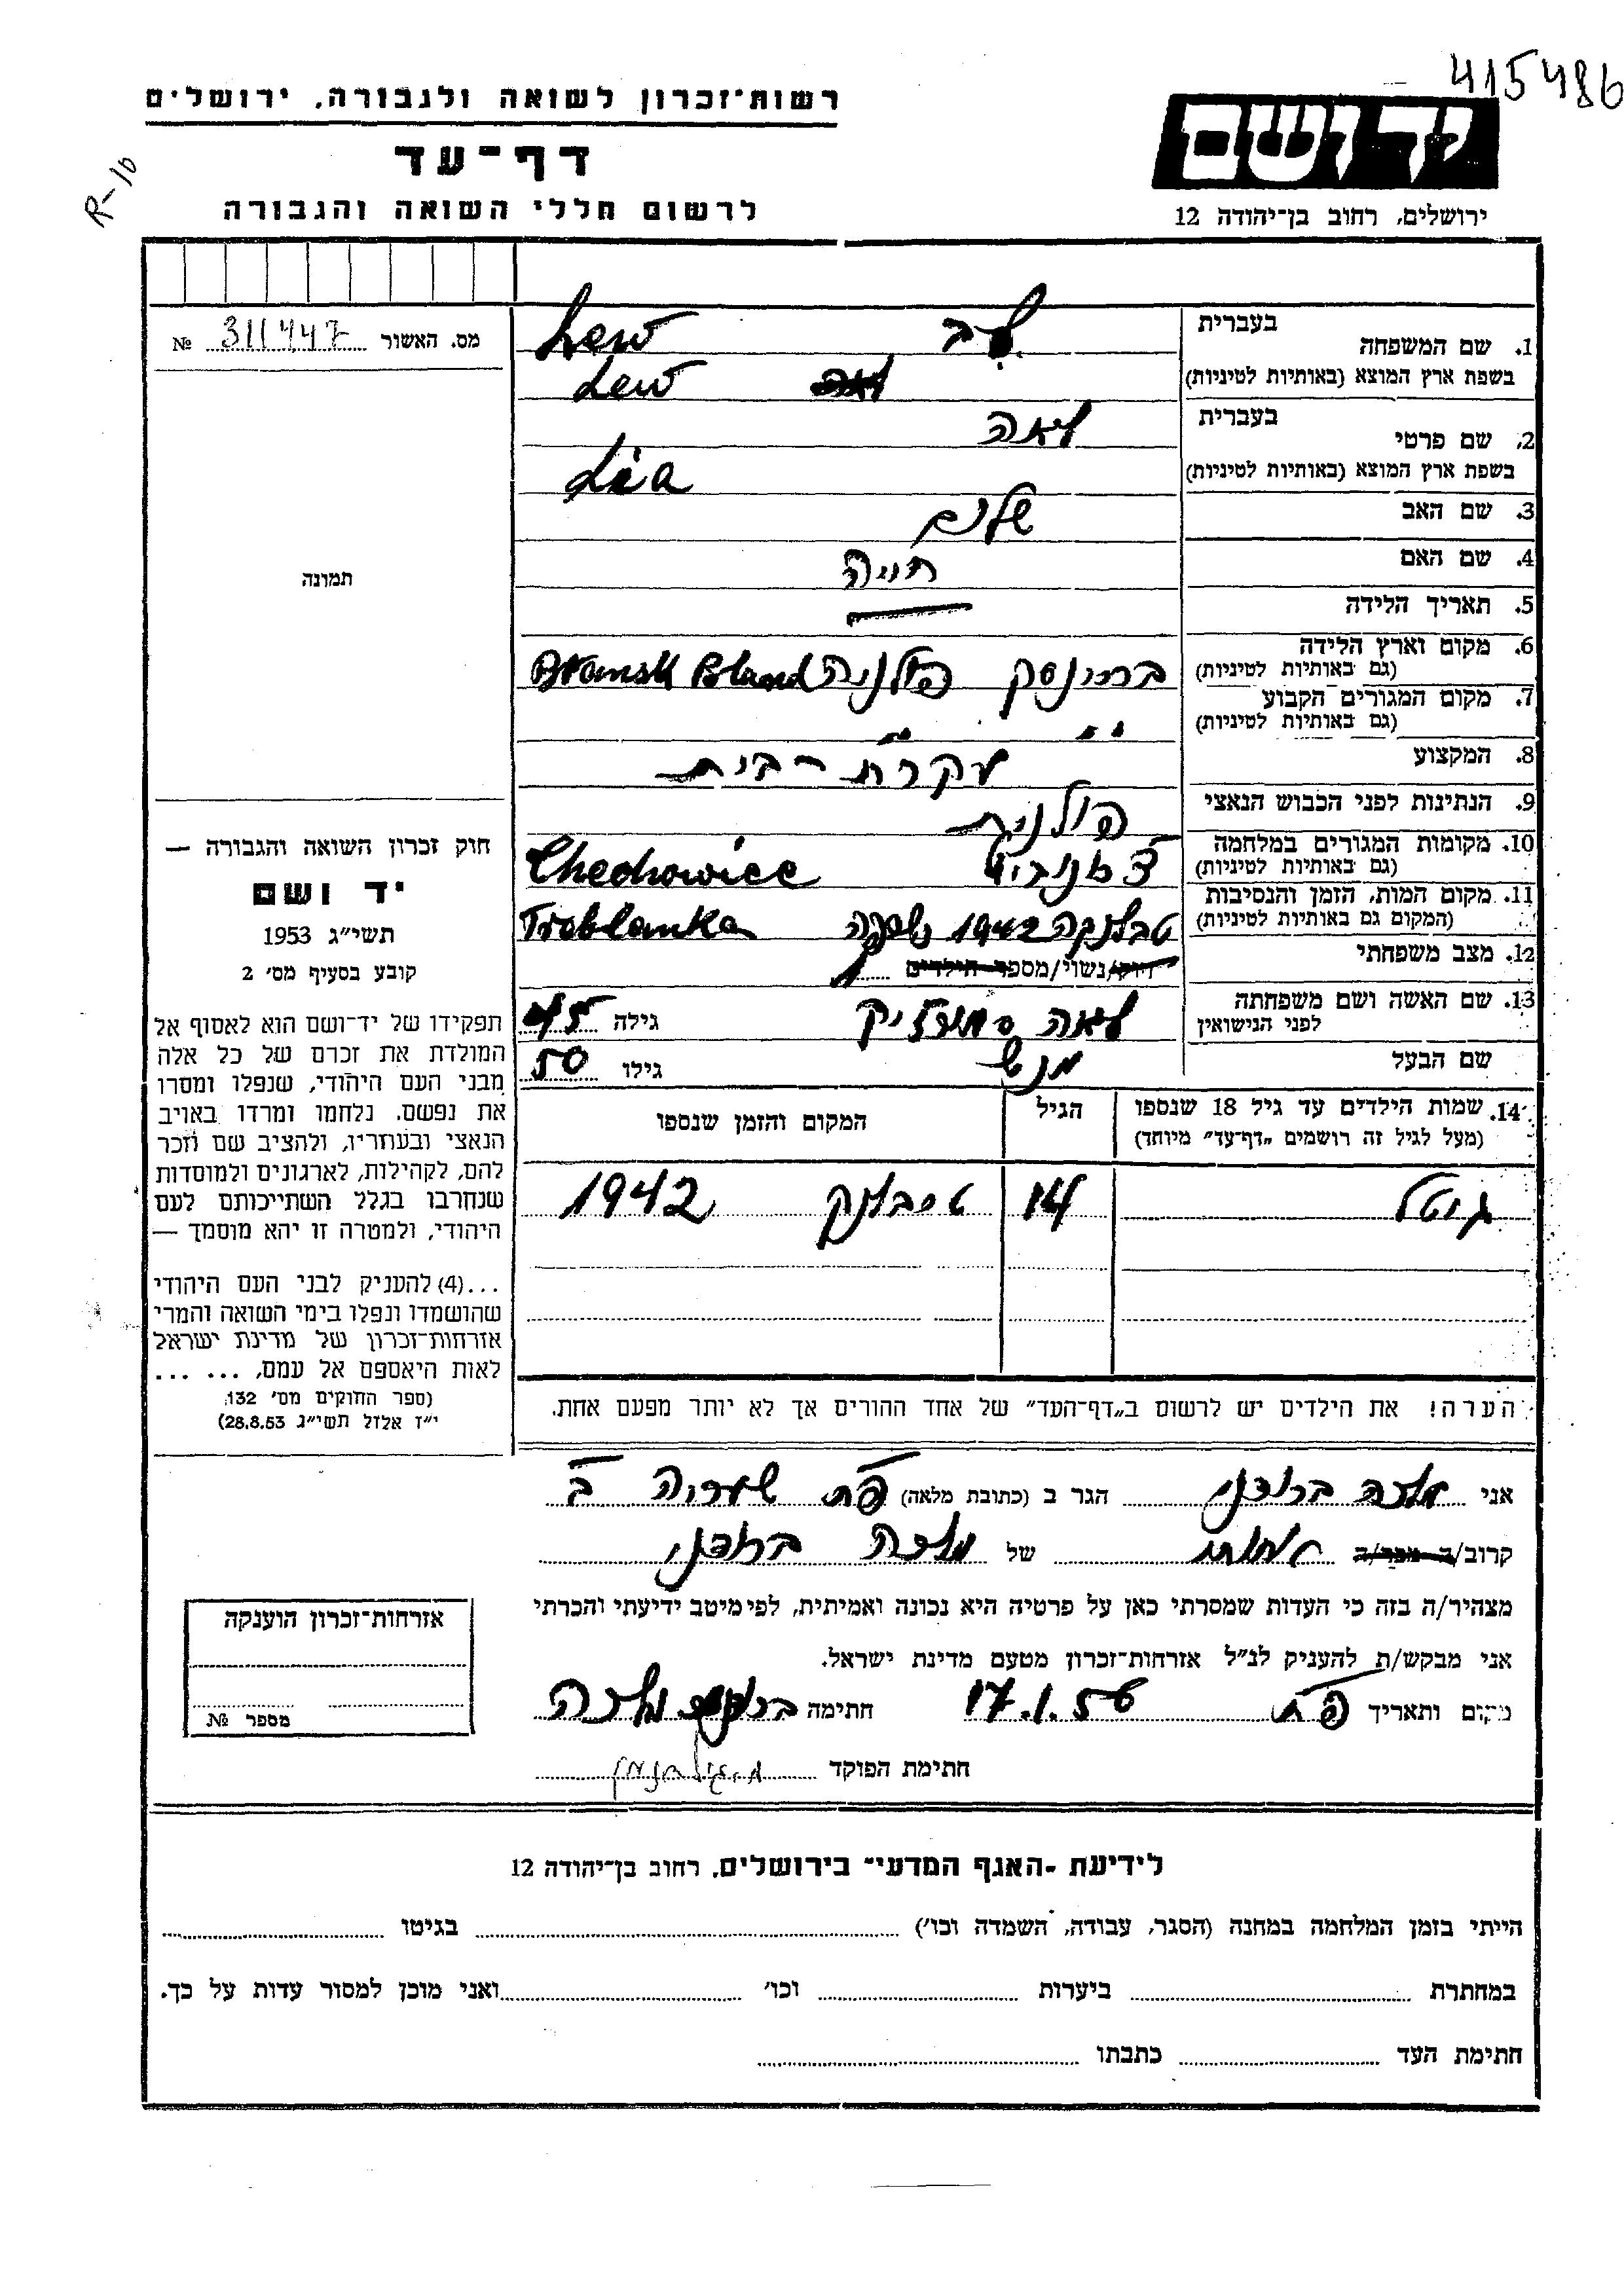 415486
R-10
רשות-זכרון לשואה ולגבורה, ירושלים
דף-עד
לרשום חללי השואה והגבורה
יד ושם
ירושלים, רחוב בן-יהודה 12
מס. האשור 311447 №
תמונה
1. שם המשפחה
בעברית לב Lew
בשפת ארץ המוצא (באותיות לטיניות) Lew
2. שם פרטי
בעברית לאה
בשפת ארץ המוצא (באותיות לטיניות) Lea
3. שם האב שלום
4. שם האם חויה
5. תאריך הלידה —
6. מקום וארץ הלידה
(גם באותיות לטיניות) פולניה Bransk Poland
7. מקום המגורים הקבוע
(גם באותיות לטיניות) " "
8. המקצוע עקרת-בית
9. הנתינות לפני הכבוש הנאצי פולנית
10. מקומות המגורים במלחמה
(גם באותיות לטיניות)
11. מקום המות, הזמן והנסיבות
(המקום גם באותיות לטיניות) 1942 Treblanka
12. מצב משפחתי
רווק/נשוי/מספר הילדים 1
13. שם האשה ושם משפחתה
לפני הנישואין לאה גילה 45
שם הבעל גילו 50
14. שמות הילדים עד גיל 18 שנספו
(מעל לגיל זה רושמים „דף-עד” מיוחד)
הגיל
המקום והזמן שנספו
גיטל 14 1942
הערה! את הילדים יש לרשום ב„דף-העד” של אחד ההורים אך לא יותר מפעם אחת.
חוק זכרון השואה והגבורה —
יד ושם
תשי"ג 1953
קובע בסעיף מס' 2
תפקידו של יד-ושם הוא לאסוף אל
המולדת את זכרם של כל אלה
מבני העם היהודי, שנפלו ומסרו
את נפשם, נלחמו ומרדו באויב
הנאצי ובעוזריו, ולהציב שם וזכר
להם, לקהילות, לארגונים ולמוסדות
שנחרבו בגלל השתייכותם לעם
היהודי, ולמטרה זו יהא מוסמך —
...(4) להעניק לבני העם היהודי
שהושמדו ונפלו בימי השואה והמרי
אזרחות-זכרון של מדינת ישראל
לאות היאספם אל עמם, ... ...
(ספר החוקים מס' 132,
י"ז אלול תשי"ג 28.8.53)
אני מלכה הגר ב (כתובת מלאה) פ"ת שעריה ב'
קרוב/ה מכר/ה אחות של מלכה
מצהיר/ה בזה כי העדות שמסרתי כאן על פרטיה היא נכונה ואמיתית, לפי מיטב ידיעתי והכרתי
אני מבקש/ת להעניק לנ"ל אזרחות-זכרון מטעם מדינת ישראל.
מקום ותאריך פ"ת 17.1.56 חתימה מלכה
חתימת הפוקד
אזרחות-זכרון הוענקה
מספר №
לידיעת -האגף המדעי- בירושלים, רחוב בן-יהודה 12
הייתי בזמן המלחמה במחנה (הסגר, עבודה, השמדה וכו') בגיטו
במחתרת ביערות וכו' ואני מוכן למסור עדות על כך.
חתימת העד כתבתו